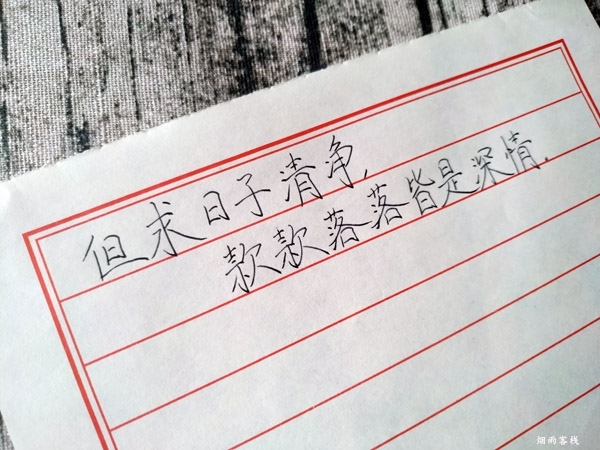 但求日子清净,
款款落落皆是深情.
烟雨客栈